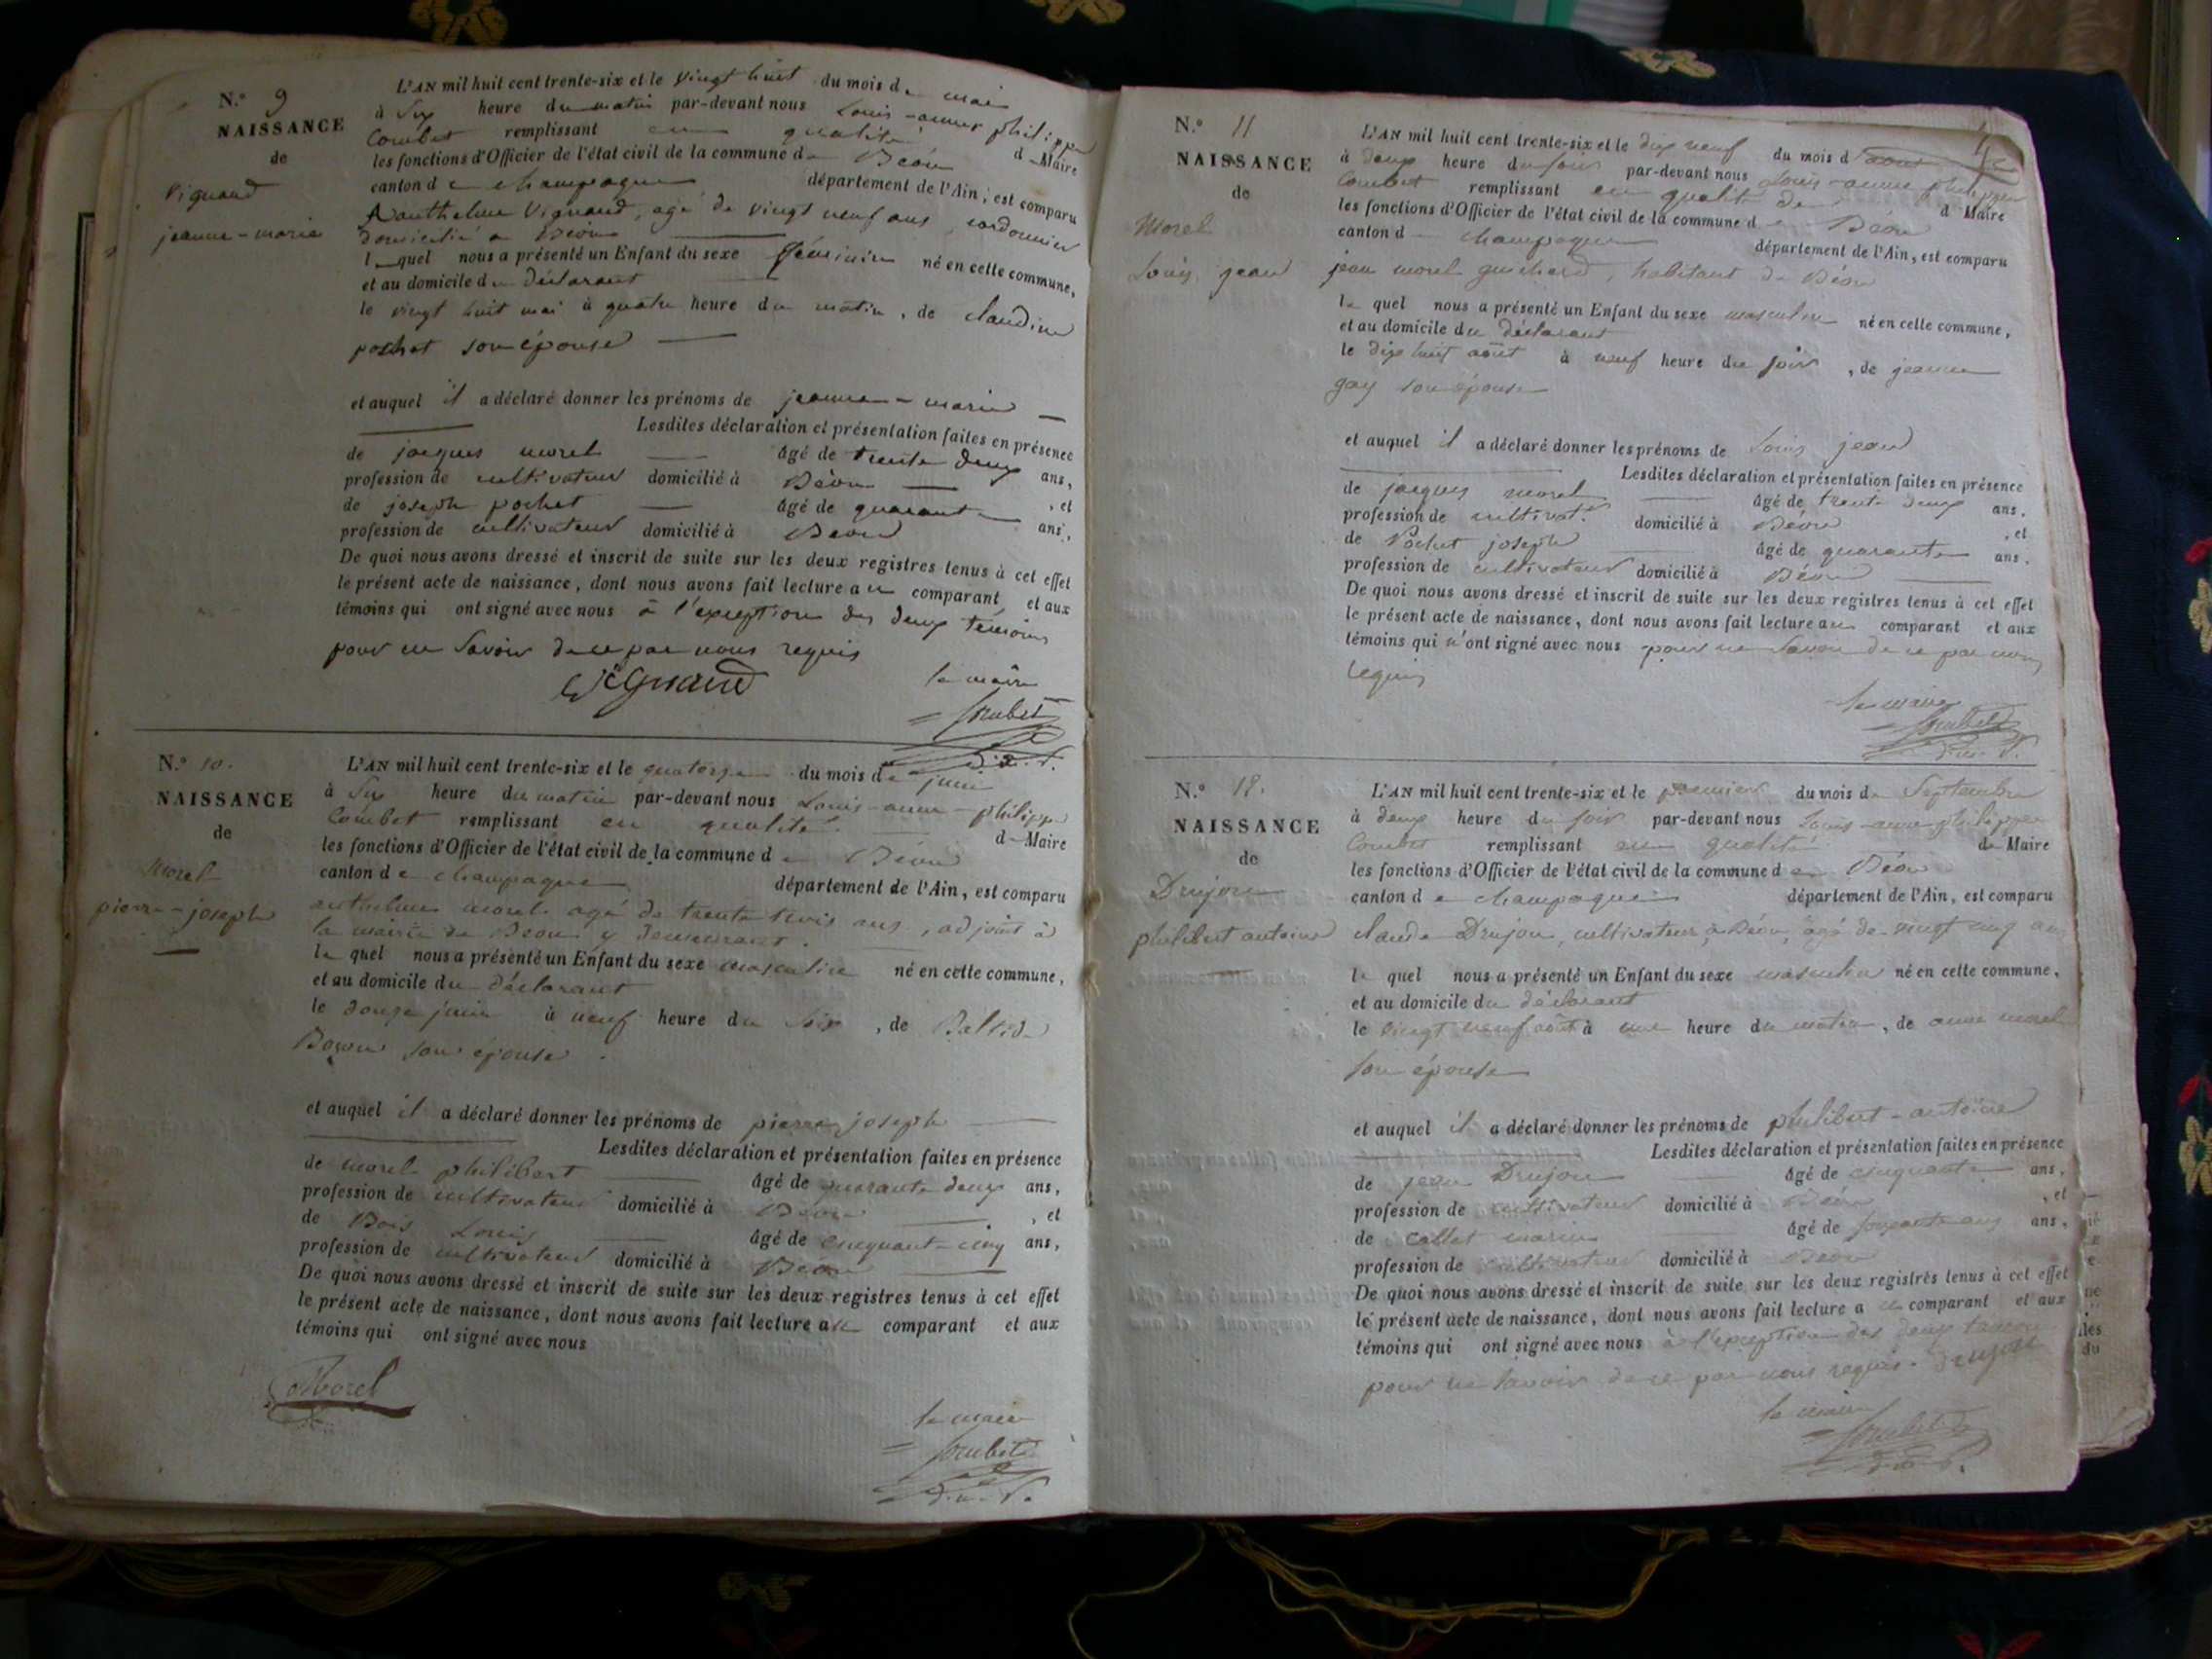 N.º 9
NAISSANCE
de
Vignaud
jeanne-marie
L'AN mil huit cent trente-six et le vingt huit du mois de mai
à Six heure du matin par-devant nous Louis-anne philippe
Combet remplissant en qualité d Maire
les fonctions d'Officier de l'état civil de la commune de Béon
canton de champagne département de l'Ain, est comparu
Anthelme Vignaud, agé de vingt neuf ans, cordonnier
domicilié a Béon
lequel nous a présenté un Enfant du sexe féminin né en cette commune,
et au domicile du déclarant
le vingt huit mai à quatre heure du matin, de claudine
pochet son épouse
et auquel il a déclaré donner les prénoms de jeanne-marie
Lesdites déclaration et présentation faites en présence
de jacques morel âgé de trente deux ans,
profession de cultivateur domicilié à Béon , et
de joseph pochet âgé de quarante ans,
profession de cultivateur domicilié à Béon
De quoi nous avons dressé et inscrit de suite sur les deux registres tenus à cet effet
le présent acte de naissance, dont nous avons fait lecture au comparant et aux
témoins qui ont signé avec nous à l'exception des deux témoins
pour ne savoir de ce par nous requis
Vignaud
le maire
Combet
N.º 10.
NAISSANCE
de
Morel
pierre-joseph
L'AN mil huit cent trente-six et le quatorze du mois de juin
à Six heure du matin par-devant nous Louis-anne-philippe
Combet remplissant en qualité d Maire
les fonctions d'Officier de l'état civil de la commune de Béon
canton de champagne département de l'Ain, est comparu
anthelme morel agé de trente trois ans, adjoint à
la mairie de Béon y demeurant.
lequel nous a présenté un Enfant du sexe masculin né en cette commune,
et au domicile du déclarant
le douze juin à neuf heure du Soir, de
son épouse.
et auquel il a déclaré donner les prénoms de pierre joseph
Lesdites déclaration et présentation faites en présence
de morel philibert âgé de quarante deux ans,
profession de cultivateur domicilié à Béon , et
de Bois Louis âgé de cinquante-cinq ans,
profession de cultivateur domicilié à Béon
De quoi nous avons dressé et inscrit de suite sur les deux registres tenus à cet effet
le présent acte de naissance, dont nous avons fait lecture au comparant et aux
témoins qui ont signé avec nous
Morel
le maire
Combet
N.º 11
NAISSANCE
de
Morel
Louis jean
L'AN mil huit cent trente-six et le dix neuf du mois d'aout
à deux heure du soir par-devant nous Louis-anne philippe
Combet remplissant en qualité de d Maire
les fonctions d'Officier de l'état civil de la commune de Béon
canton d champagne département de l'Ain, est comparu
jean morel guichard, habitant de Béon
lequel nous a présenté un Enfant du sexe masculin né en cette commune,
et au domicile du déclarant
le dix huit août à neuf heure du soir, de jeanne
gay son épouse
et auquel il a déclaré donner les prénoms de Louis jean
Lesdites déclaration et présentation faites en présence
de jacques morel âgé de trente deux ans,
profession de cultivat.r domicilié à Béon , et
de Pochet joseph âgé de quarante ans,
profession de cultivateur domicilié à Béon
De quoi nous avons dressé et inscrit de suite sur les deux registres tenus à cet effet
le présent acte de naissance, dont nous avons fait lecture au comparant et aux
témoins qui n'ont signé avec nous pour ne Savoir de ce par nous
requis
le maire
Combet
N.º 12.
NAISSANCE
de
Drujon
philibert antoine
L'AN mil huit cent trente-six et le premier du mois de Septembre
à deux heure du soir par-devant nous Louis-anne philippe
Combet remplissant en qualité de Maire
les fonctions d'Officier de l'état civil de la commune de Béon
canton de champagne département de l'Ain, est comparu
claude Drujon, cultivateur à Béon, âgé de vingt cinq ans
lequel nous a présenté un Enfant du sexe masculin né en cette commune,
et au domicile du déclarant
le vingt neuf août à une heure du matin, de anne morel
son épouse
et auquel il a déclaré donner les prénoms de philibert-antoine
Lesdites déclaration et présentation faites en présence
de jean Drujon âgé de cinquante ans,
profession de cultivateur domicilié à Béon , et
de Callet marin âgé de soixante ans,
profession de cultivateur domicilié à Béon
De quoi nous avons dressé et inscrit de suite sur les deux registres tenus à cet effet
le présent acte de naissance, dont nous avons fait lecture au comparant et aux
témoins qui ont signé avec nous à l'exception des deux témoins
pour ne savoir de ce par nous requis. Drujon
le maire
Combet